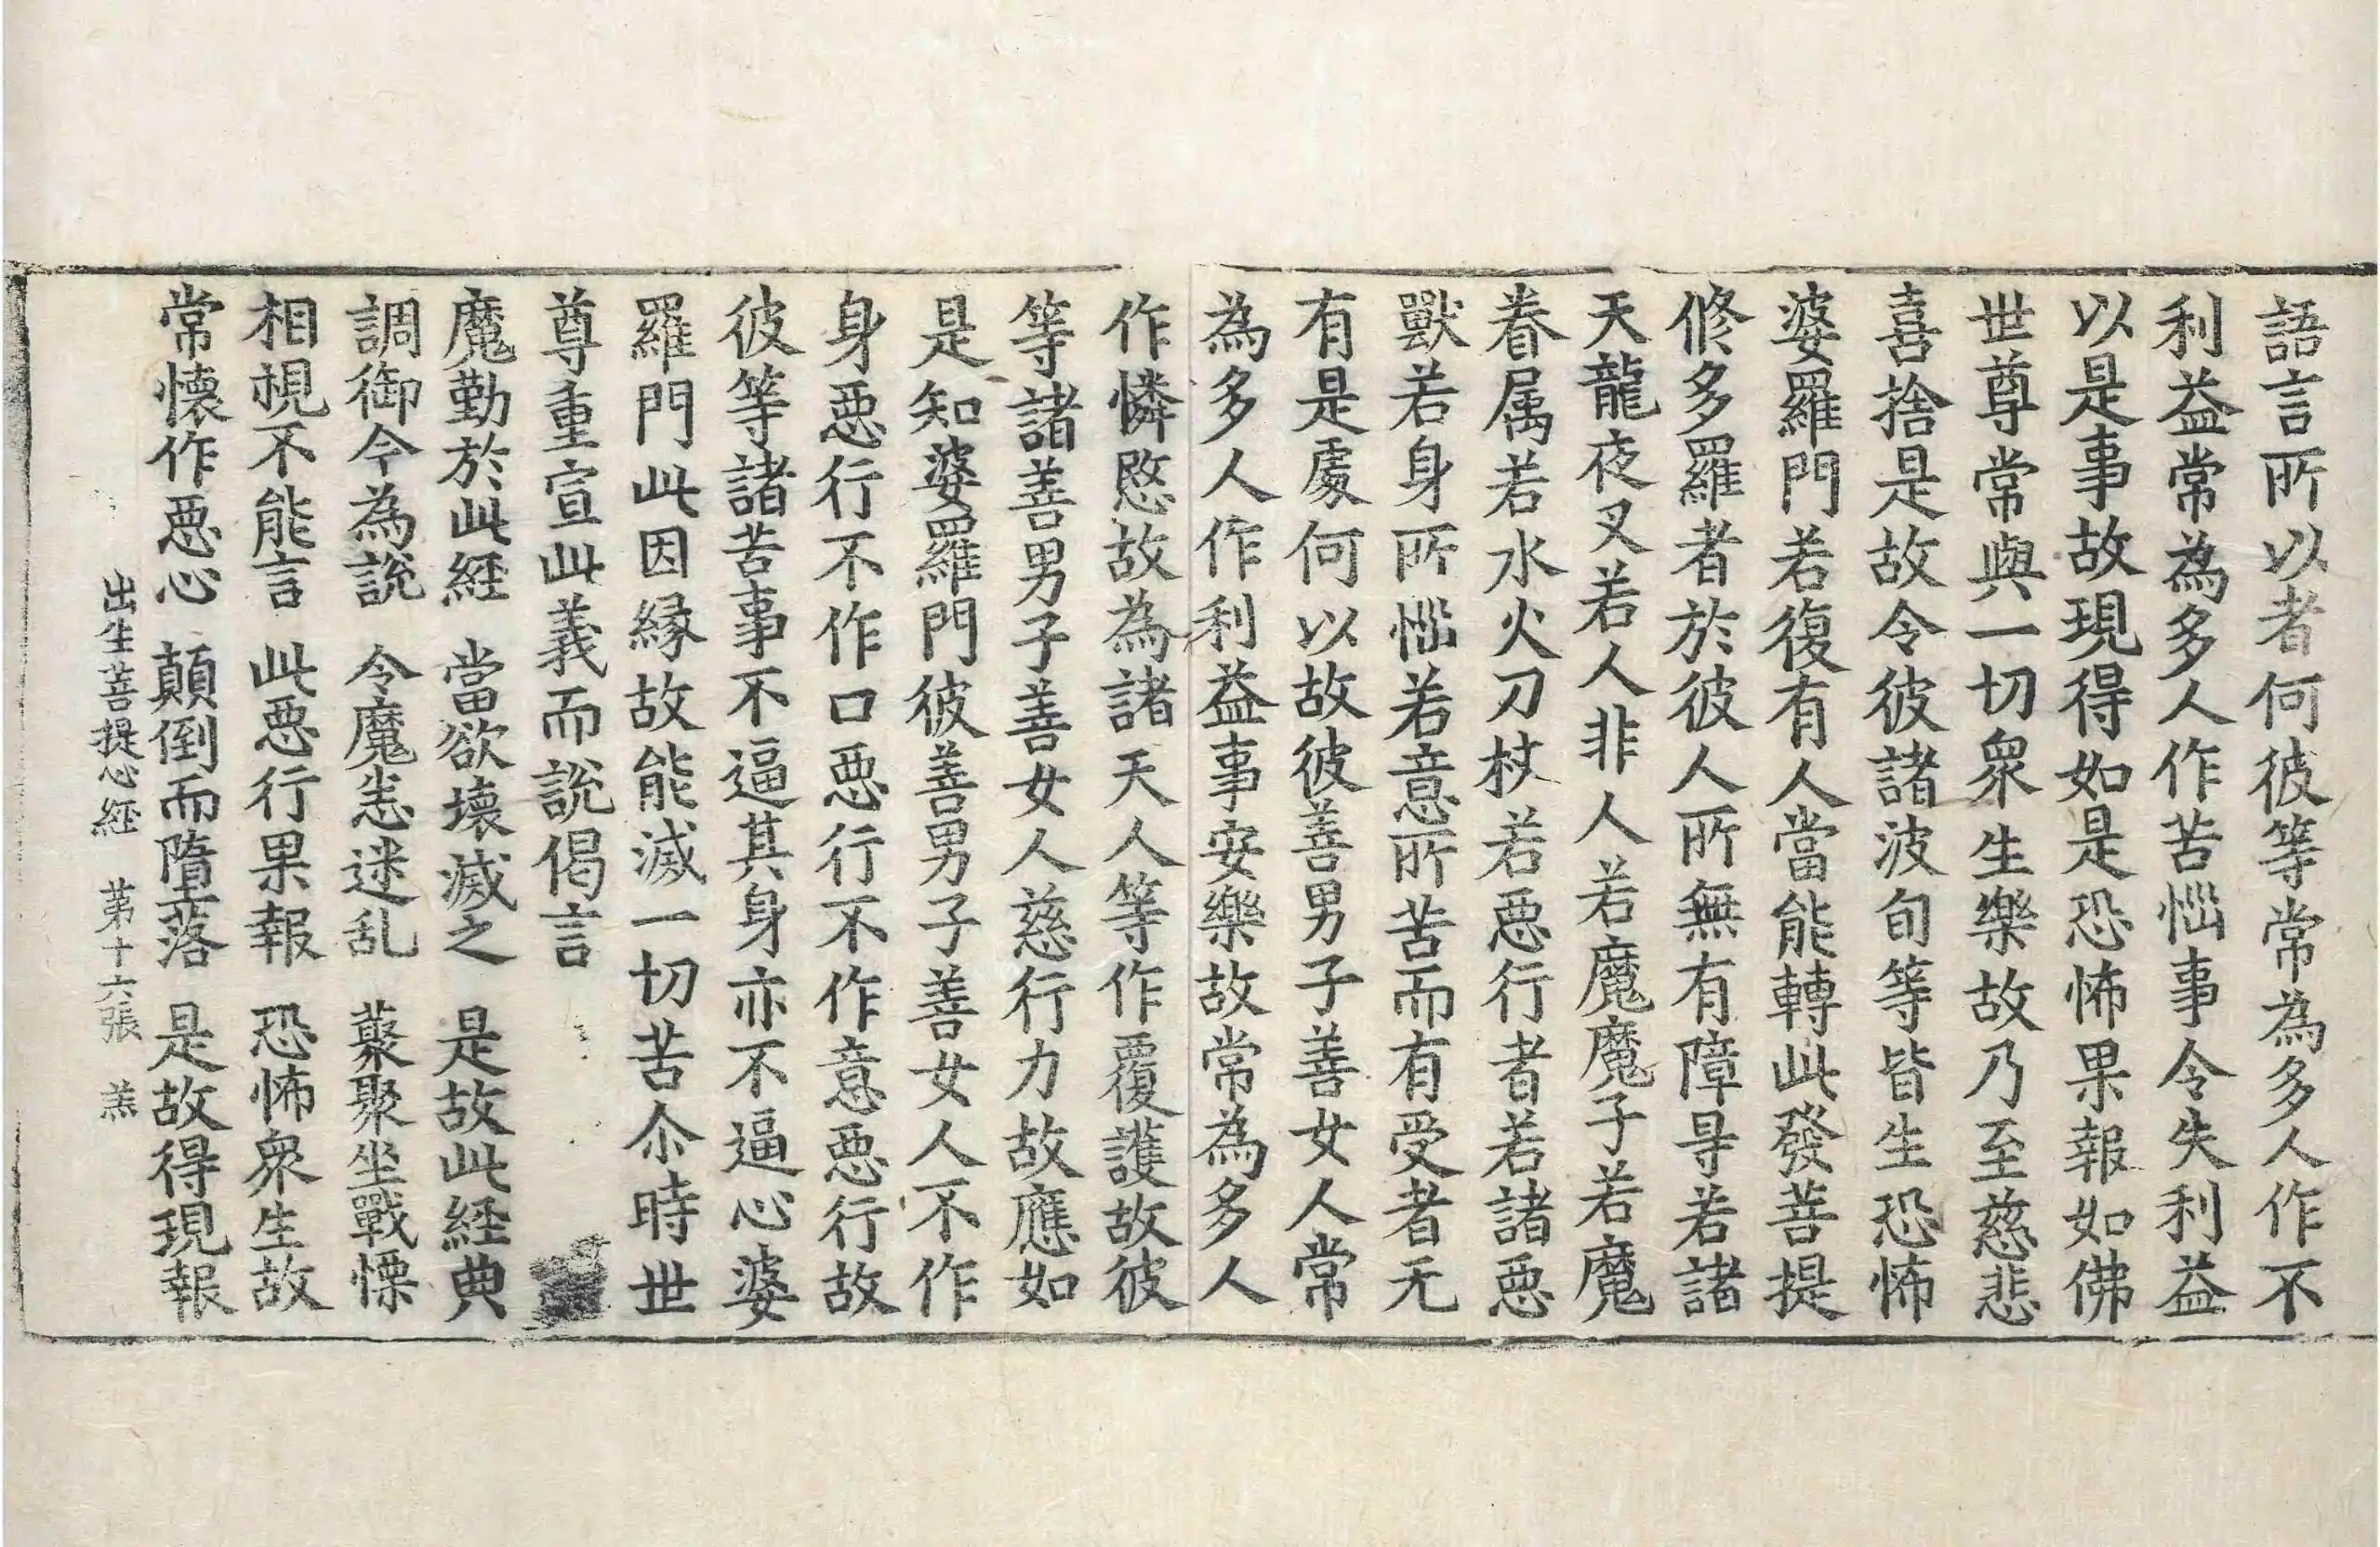 語言所以者何彼等常為多人作不
利益常為多人作苦惱事令失利益
以是事故現得如是恐怖果報如佛
世尊常與一切衆生樂故乃至慈悲
喜捨是故令彼諸波旬等皆生恐怖
婆羅門若復有人當能轉此發菩提
修多羅者於彼人所無有障㝵若諸
天龍夜叉若人非人若魔魔子若魔
眷属若水火刀杖若惡行者若諸惡
獸若身所惱若意所苦而有受者无
有是處何以故彼善男子善女人常
為多人作利益事安樂故常為多人
作憐愍故為諸天人等作覆護故彼
等諸善男子善女人慈行力故應如
是知婆羅門彼善男子善女人不作
身惡行不作口惡行不作意惡行故
彼等諸苦事不逼其身亦不逼心婆
羅門此因縁故能滅一切苦尒時世
尊重宣此義而說偈言
魔勤於此経 當欲壞滅之 是故此経典
調御今為說 令魔恚迷乱 藂聚坐戰慄
相視不能言 此惡行果報 恐怖衆生故
常懷作惡心 顛倒而墮落 是故得現報
出生菩提心経 苐十六張 羔